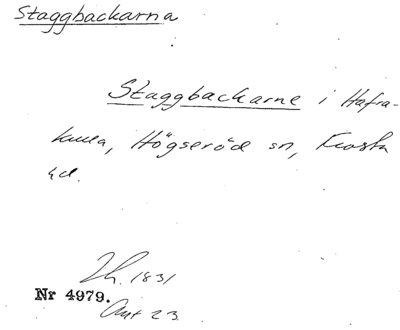 Staggbackarna
Staggbackarne i Hafra-
kulla, Högseröd sn, Frosta
hd.
Lh. 1831
Nr 4979.
Akt 23